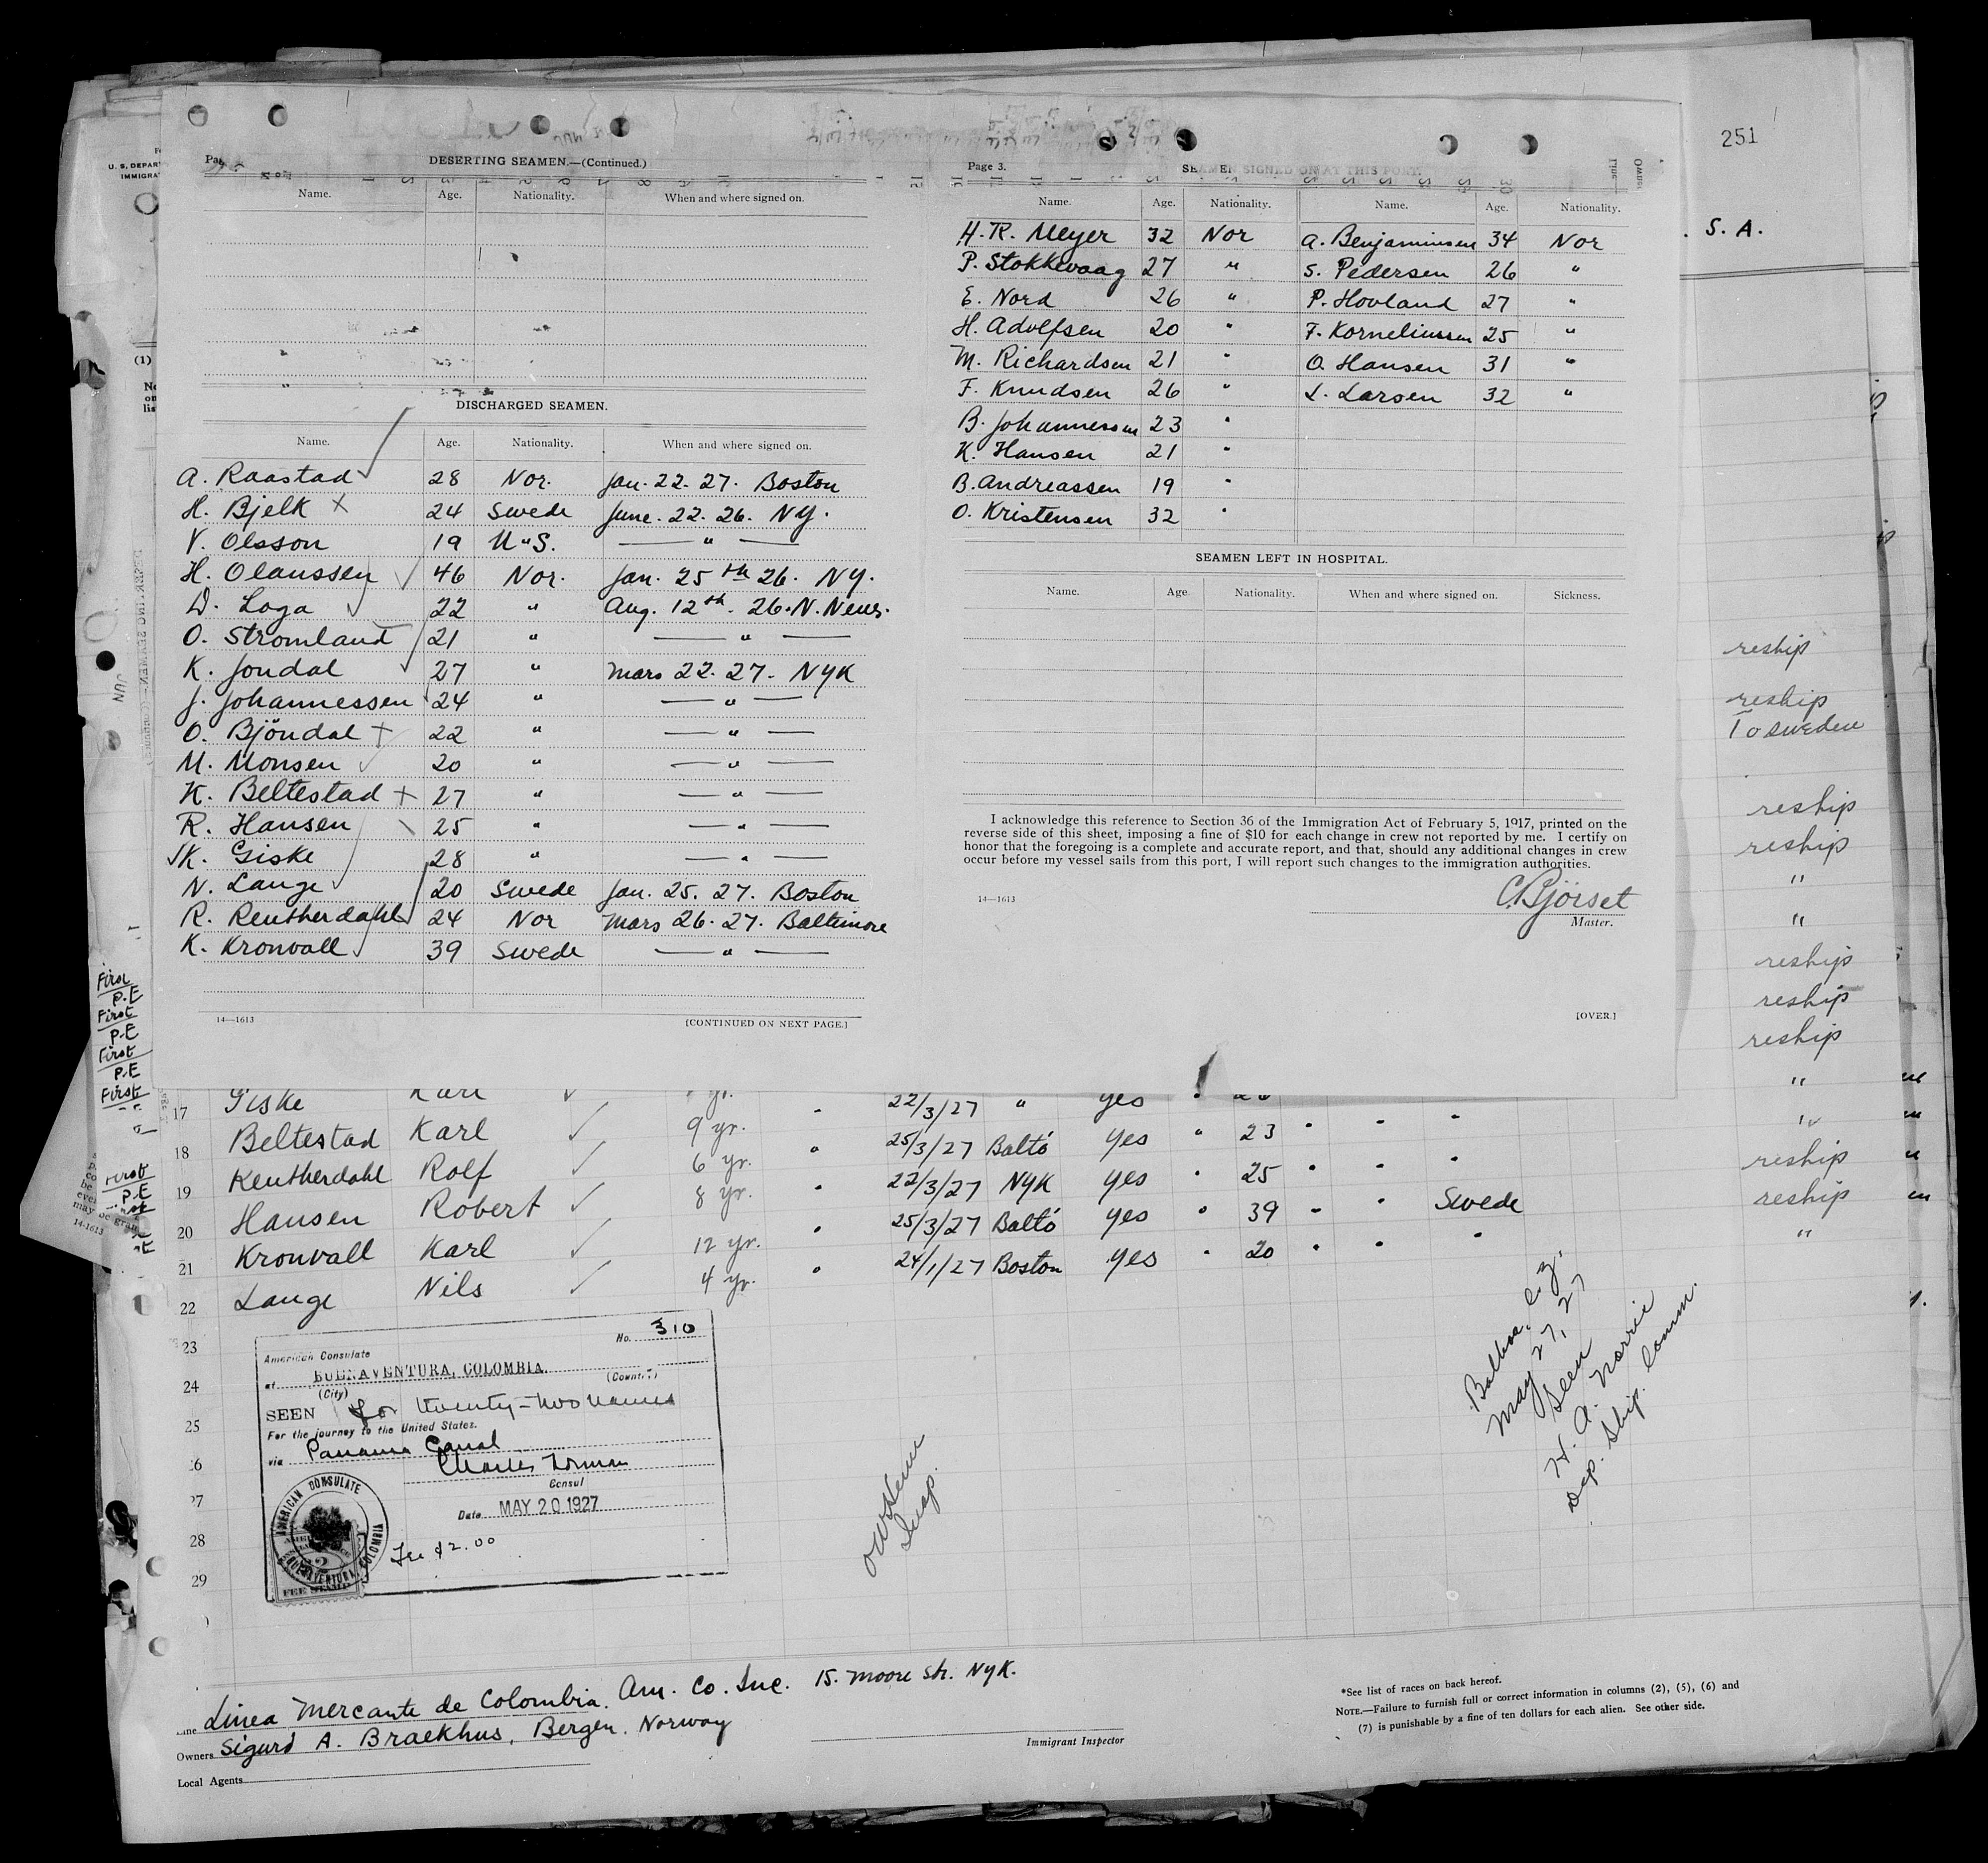 251
S. A.
DESERTING SEAMEN.—(Continued.)
Name. Age. Nationality. When and where signed on.
DISCHARGED SEAMEN.
Name. Age. Nationality. When and where signed on.
A. Raastad 28 Nor. Jan. 22. 27. Boston
H. Bjelk x 24 Swede June. 22. 26. NY.
V. Olsson 19 U.S. — " —
H. Olaussen 46 Nor. Jan. 25th 26. NY.
D. Loga 22 " Aug. 12th. 26. N. News.
O. Stromland 21 " — " —
K. Jondal 27 " Mars 22. 27. NYK
J. Johannessen 24 " — " —
O. Bjöndal x 22 " — " —
M. Monsen 20 " — " —
K. Beltestad x 27 " — " —
R. Hansen 25 " — " —
K. Giske 28 " — " —
N. Lange 20 Swede Jan. 25. 27. Boston
R. Reutherdahl 24 Nor Mars 26. 27. Baltimore
K. Kronvall 39 Swede — " —
14—1613 [CONTINUED ON NEXT PAGE.]
Page 3. SEAMEN SIGNED ON AT THIS PORT.
Name. Age. Nationality. Name. Age. Nationality.
H. R. Meyer 32 Nor A. Benjaminsen 34 Nor
P. Stokkevaag 27 " S. Pedersen 26 "
E. Nord 26 " P. Hovland 27 "
H. Adolfsen 20 " F. Korneliussen 25 "
M. Richardsen 21 " O. Hansen 31 "
F. Knudsen 26 " L. Larsen 32 "
B. Johannessen 23 "
K. Hansen 21 "
B. Andreassen 19 "
O. Kristensen 32 "
SEAMEN LEFT IN HOSPITAL.
Name. Age. Nationality. When and where signed on. Sickness.
I acknowledge this reference to Section 36 of the Immigration Act of February 5, 1917, printed on the
reverse side of this sheet, imposing a fine of $10 for each change in crew not reported by me. I certify on
honor that the foregoing is a complete and accurate report, and that, should any additional changes in crew
occur before my vessel sails from this port, I will report such changes to the immigration authorities.
14—1613 C. Björset
Master.
[OVER.]
reship
reship
To Sweden
reship
reship
"
"
reship
reship
reship
"
"
reship
reship
"
First
P.E
First
P.E
First
P.E
First
First
P.E
17 Giske Karl 22/3/27 " yes
18 Beltestad Karl 9 yr. " 25/3/27 Balto yes " 23 " " "
19 Reutherdahl Rolf 6 yr. " 22/3/27 NYK yes " 25 " " "
20 Hansen Robert 8 yr. " 25/3/27 Balto yes " 39 " " Swede
21 Kronvall Karl 12 yr. " 24/1/27 Boston yes " 20 " " "
22 Lange Nils 4 yr.
23
24
25
26
27
28
29
No. 310
American Consulate
at BUENAVENTURA, COLOMBIA.
(City) (Country)
SEEN for twenty-two names
For the journey to the United States.
via Panama Canal
Charles Forman
Consul
Date MAY 20 1927
Fee $2.00
AMERICAN CONSULATE
BUENAVENTURA, COLOMBIA
FEE STAMP
Insp.
Balboa, C.Z.
May 27, 27
Seen
H. A. Norrie
Dep. Ship. Comm.
Line Linea Mercante de Colombia. Am. Co. Inc. 15. Moore Str. NYK.
Owners Sigurd A. Braekhus, Bergen. Norway
Local Agents
Immigrant Inspector
*See list of races on back hereof.
NOTE.—Failure to furnish full or correct information in columns (2), (5), (6) and
(7) is punishable by a fine of ten dollars for each alien. See other side.